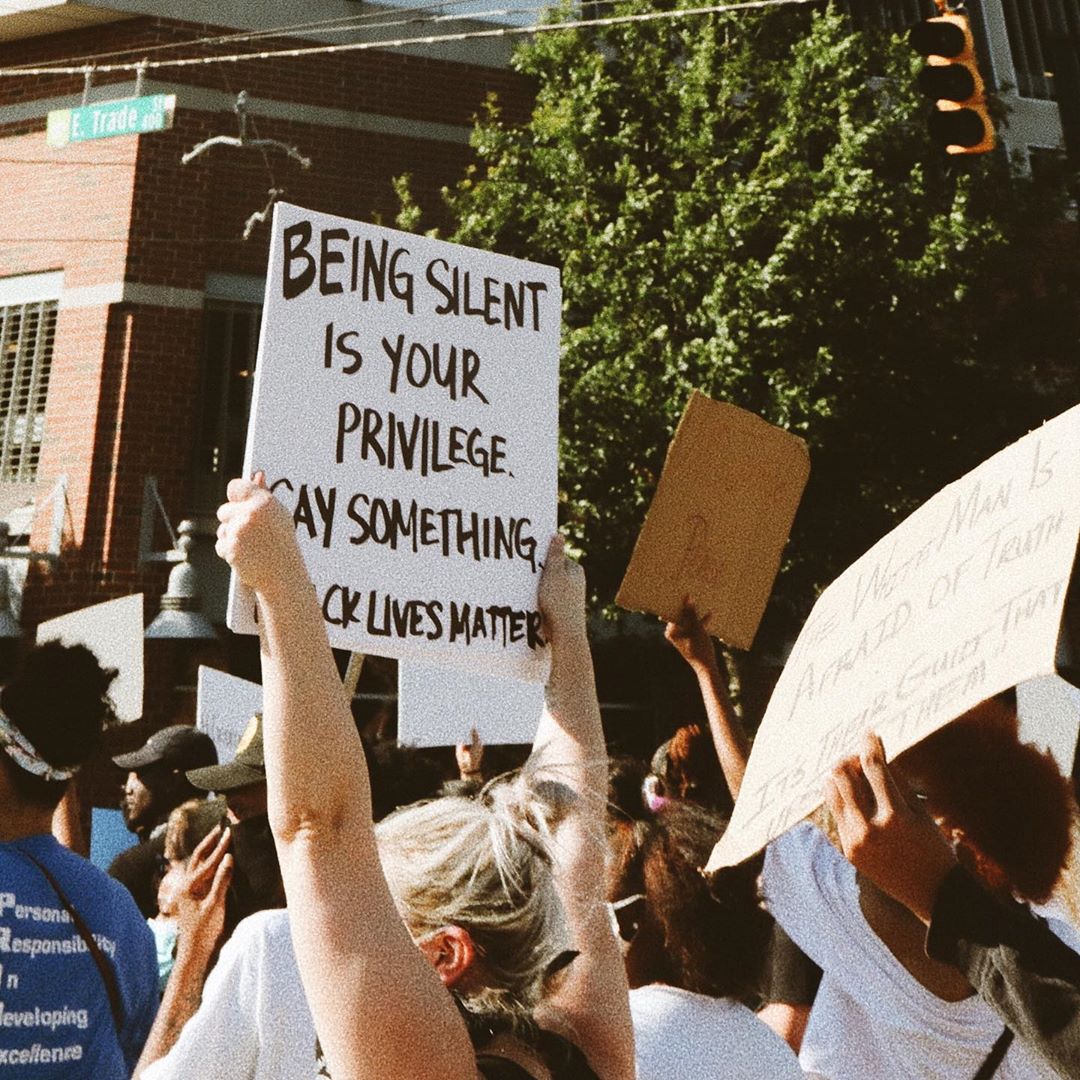 E. Trade ST
400
BEING SILENT
IS YOUR
PRIVILEGE.
SAY SOMETHING.
BLACK LIVES MATTER
White Man Is
Afraid of Truth
Its Their Guilt That
Them
Personal
Responsibility
In
Developing
Excellence